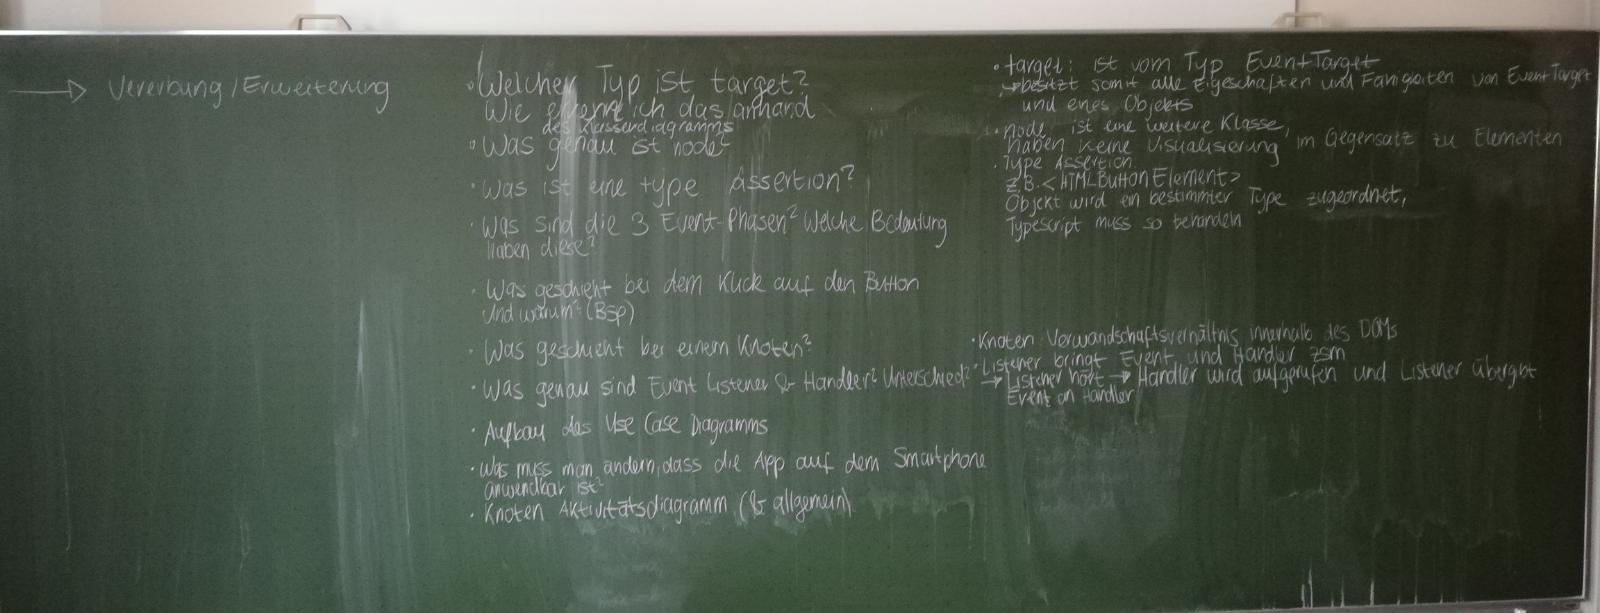 → Vererbung / Erweiterung
• Welcher Typ ist target?
Wie erkenne ich das anhand
des Klassendiagramms
• Was genau ist node?
• Was ist eine type Assertion?
• Was sind die 3 Event-Phasen? Welche Bedeutung
haben diese?
• Was geschieht bei dem Klick auf den Button
und warum? (Bsp)
• Was geschieht bei einem Knoten?
• Was genau sind Event Listener & Handler? Unterschied?
• Aufbau des Use Case Diagramms
• Was muss man ändern, dass die App auf dem Smartphone
anwendbar ist?
• Knoten Aktivitätsdiagramm (& allgemein)
• target: ist vom Typ EventTarget
→ besitzt somit alle Eigeschaften und Fähigkeiten von EventTarget
und eines Objekts
• node ist eine weitere Klasse,
haben keine Visualisierung im Gegensatz zu Elementen
• Type Assertion
z.B. <HTMLButtonElement>
Objekt wird ein bestimmter Type zugeordnet,
Typescript muss so behandeln
• Knoten Verwandschaftsverhältnis innerhalb des DOMs
• Listener bringt Event und Handler zsm
→ Listener hört → Handler wird aufgerufen und Listener übergibt
Event an Handler